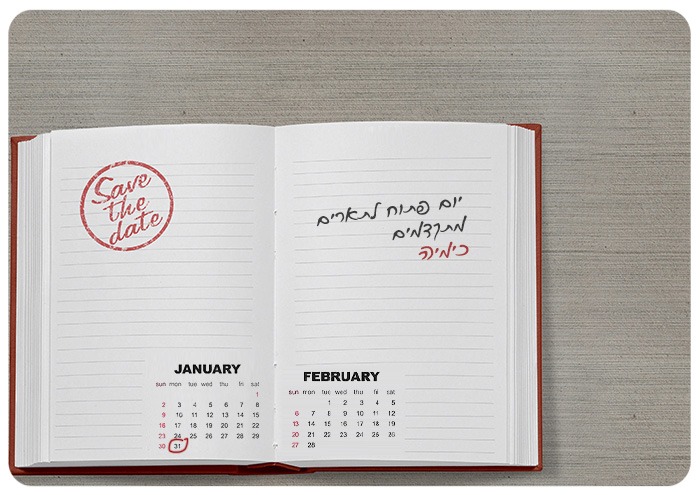 Save
the
date
יום פתוח לתארים
מתקדמים
כימיה
JANUARY
sun mon tue wed thu fri sat
1
2 3 4 5 6 7 8
9 10 11 12 13 14 15
16 17 18 19 20 21 22
23 24 25 26 27 28 29
30 31
FEBRUARY
sun mon tue wed thu fri sat
1 2 3 4 5
6 7 8 9 10 11 12
13 14 15 16 17 18 19
20 21 22 23 24 25 26
27 28